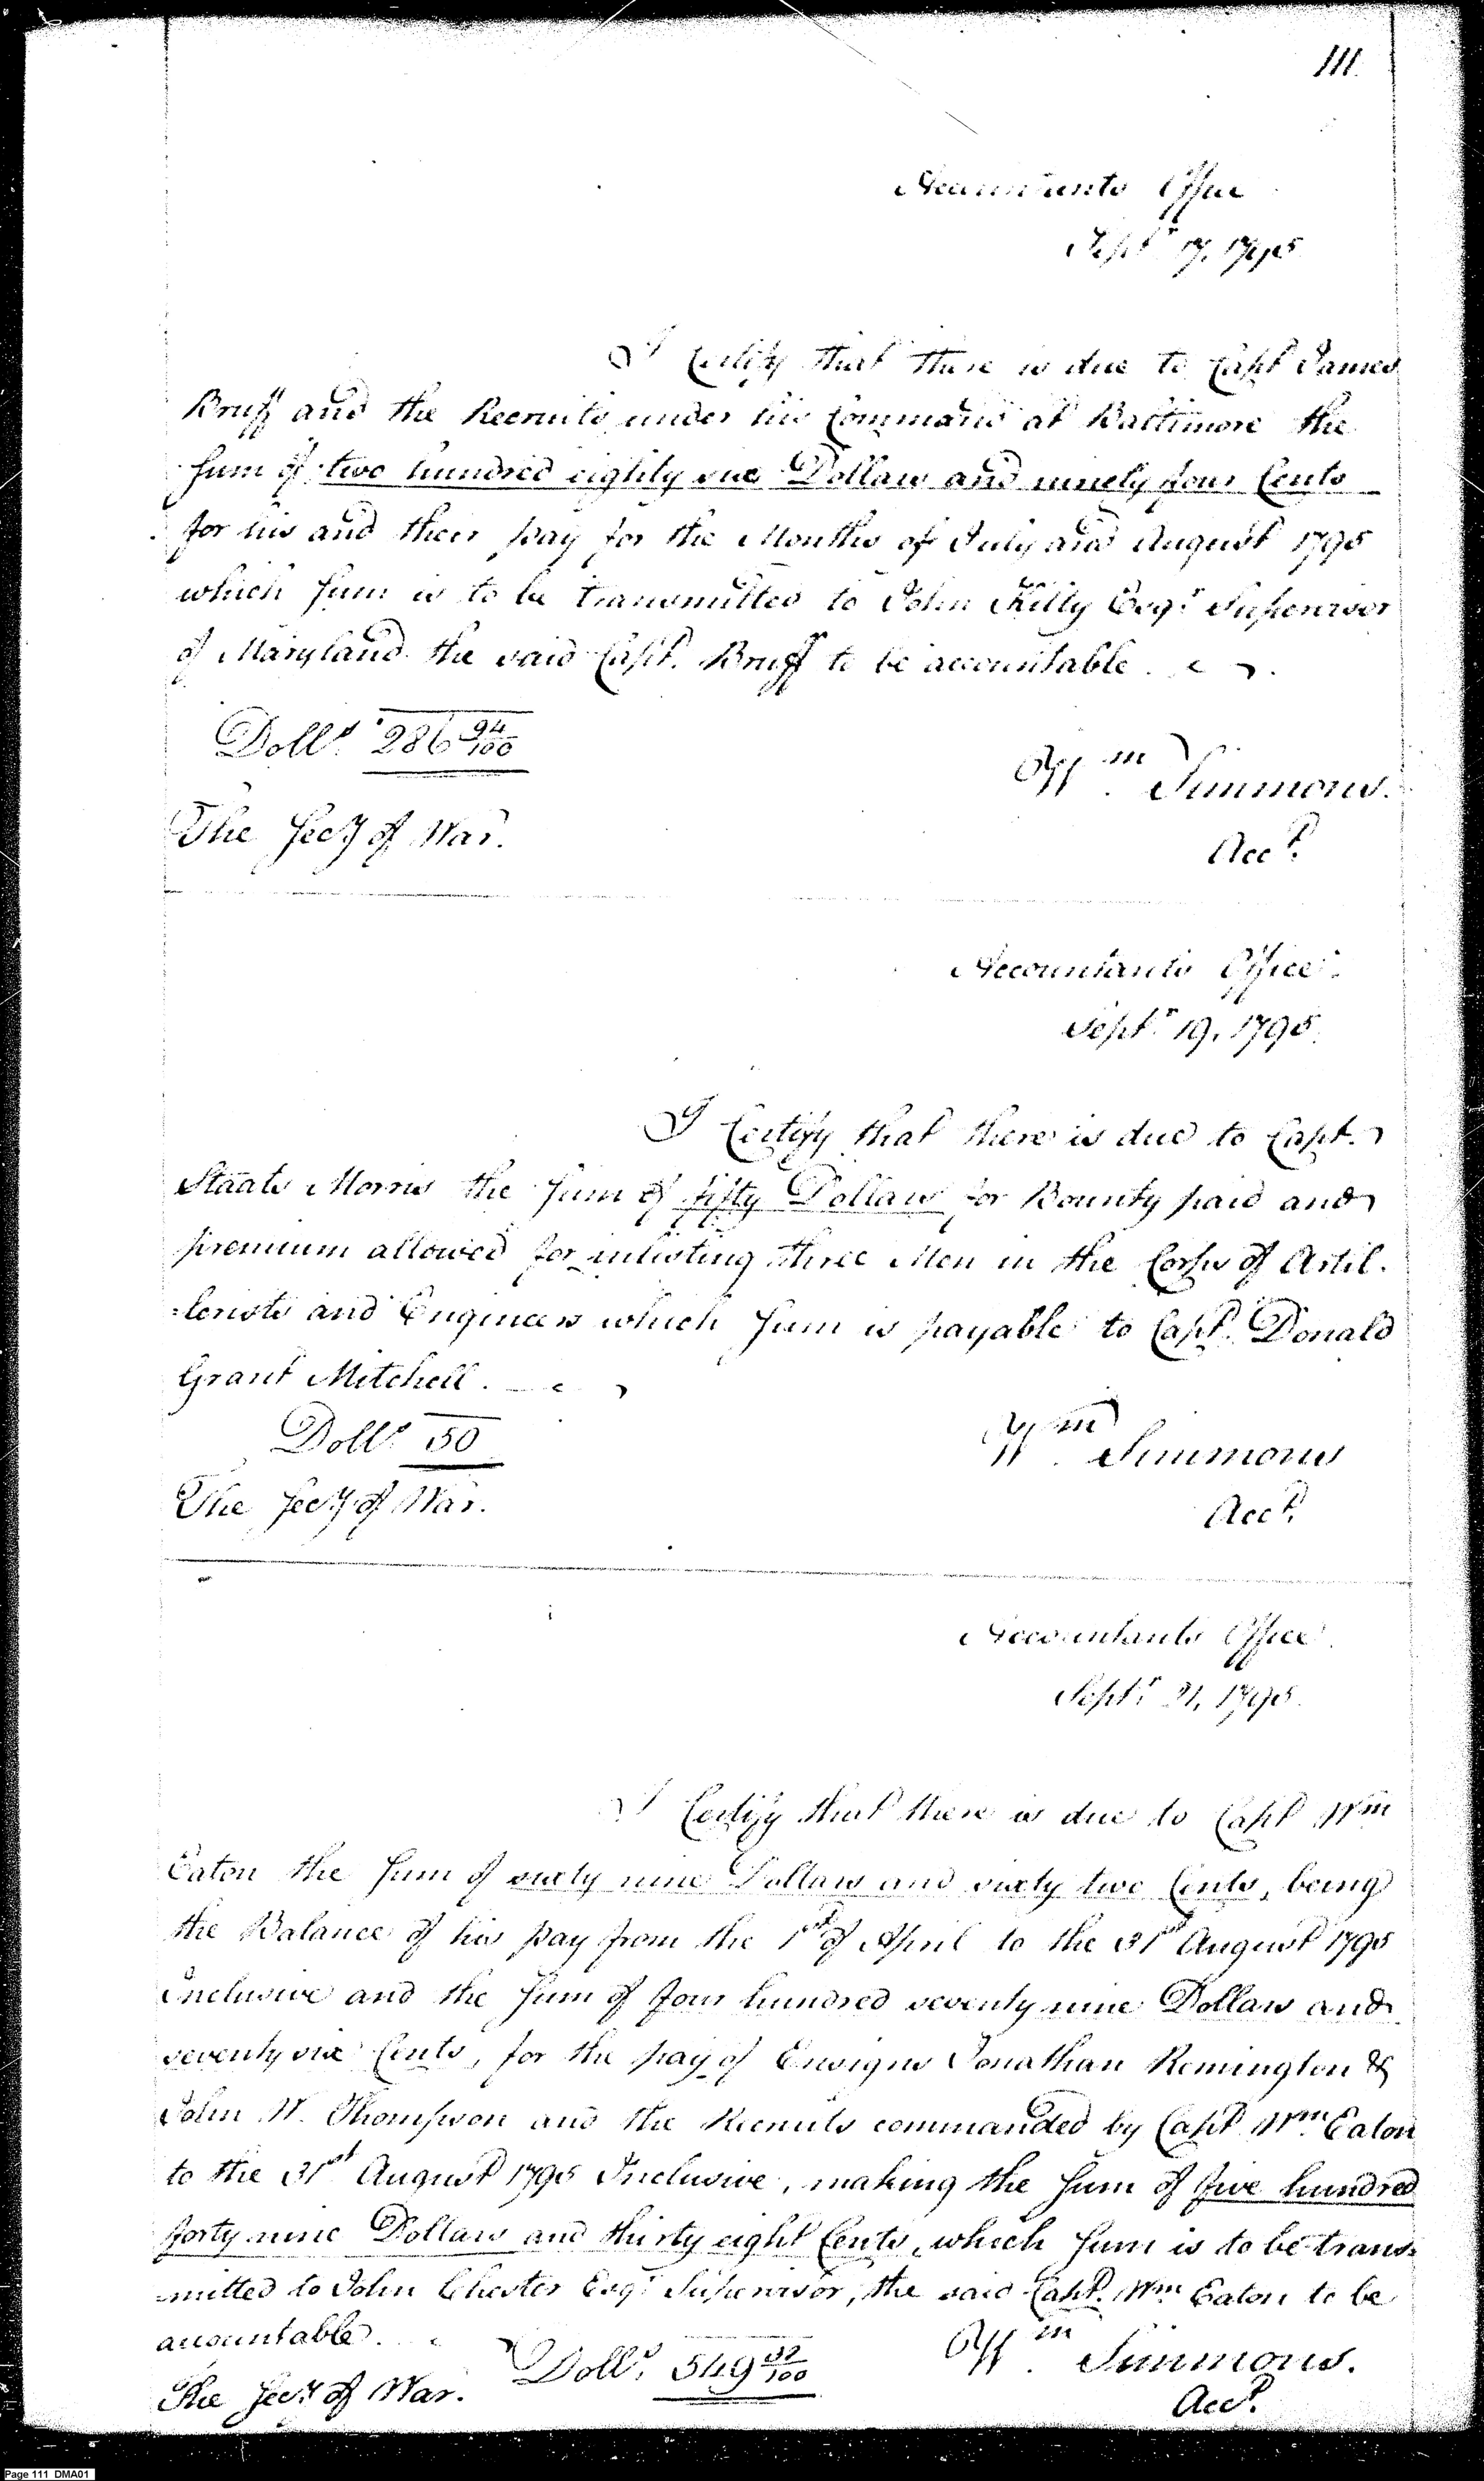 111.
Accountants Office
Sept.r 17, 1795
I Certify that there is due to Capt James
Bruff and the Recruits under his Command at Baltimore the
Sum of two hundred eighty six Dollars and ninety four Cents
for his and their pay for the Months of July and August 1795
which Sum is to be transmitted to John Kilty Esq.r Supervisor
of Maryland the said Capt. Bruff to be accountable.
Doll.s 286 94/100
Wm. Simmons.
The Secy of War.
Acct.
Accountants Office.
Sept.r 19, 1795.
I Certify that there is due to Capt.
Staats Morris the Sum of fifty Dollars for Bounty paid and
premium allowed for inlisting three Men in the Corps of Artil-
=lerists and Engineers which Sum is payable to Capt. Donald
Grant Mitchell.
Doll.s 50
Wm. Simmons
The Secy of War.
Acct.
Accountants Office.
Sept.r 21, 1795.
I Certify that there is due to Capt Wm
Eaton the Sum of sixty nine Dollars and sixty two Cents, being
the Balance of his pay from the 1st of April to the 31st August 1795
Inclusive and the Sum of four hundred seventy nine Dollars and
seventy six Cents, for the pay of Ensigns Jonathan Remington &
John W. Thompson and the Recruits commanded by Capt Wm. Eaton
to the 31st August 1795 Inclusive, making the Sum of five hundred
forty nine Dollars and thirty eight Cents, which Sum is to be trans=
=mitted to John Chester Esq.r Supervisor, the said Capt. Wm. Eaton to be
accountable.
Doll.s 549 38/100
Wm. Simmons.
The Secy of War.
Acct.
Page 111 DMA01